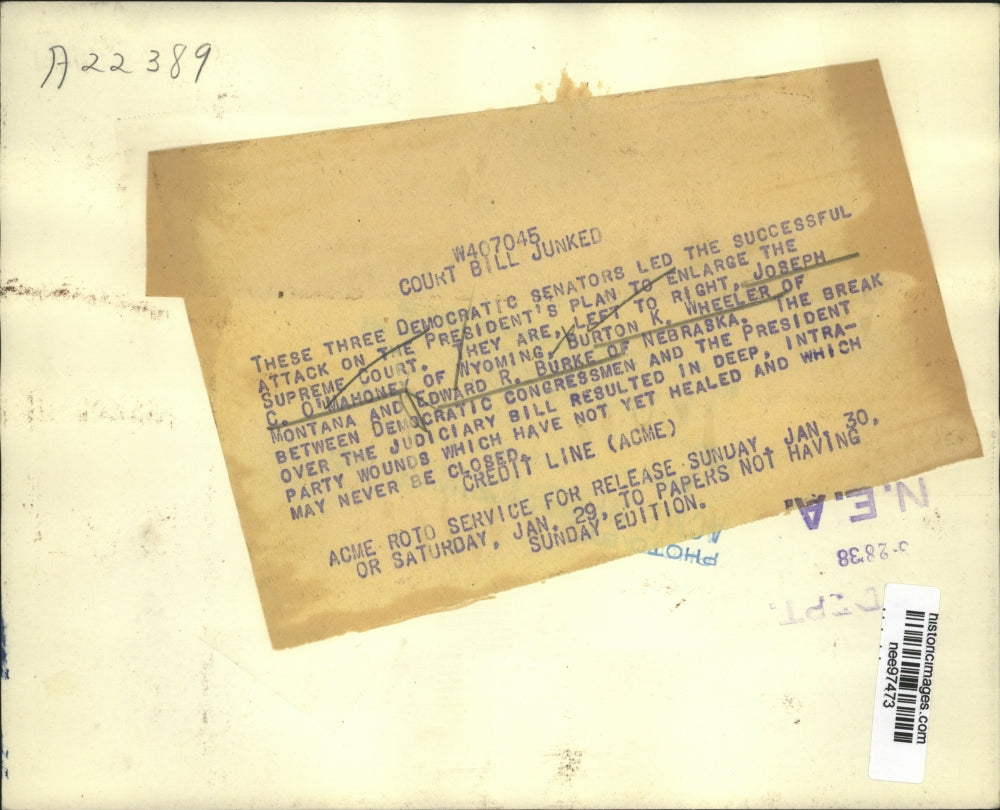 A22389
W407045
COURT BILL JUNKED
THESE THREE DEMOCRATIC SENATORS LED THE SUCCESSFUL
ATTACK ON THE PRESIDENT'S PLAN TO ENLARGE THE
SUPREME COURT. THEY ARE, LEFT TO RIGHT, JOSEPH
C. O'MAHONEY OF WYOMING, BURTON K. WHEELER OF
MONTANA AND EDWARD R. BURKE OF NEBRASKA. THE BREAK
BETWEEN DEMOCRATIC CONGRESSMEN AND THE PRESIDENT
OVER THE JUDICIARY BILL RESULTED IN DEEP, INTRA-
PARTY WOUNDS WHICH HAVE NOT YET HEALED AND WHICH
MAY NEVER BE CLOSED.
CREDIT LINE (ACME)
ACME ROTO SERVICE FOR RELEASE SUNDAY, JAN. 30,
OR SATURDAY, JAN. 29, TO PAPERS NOT HAVING
SUNDAY EDITION.
PHOTO
N.E.A.
28 38
DEPT.
historicimages.com
nee97473